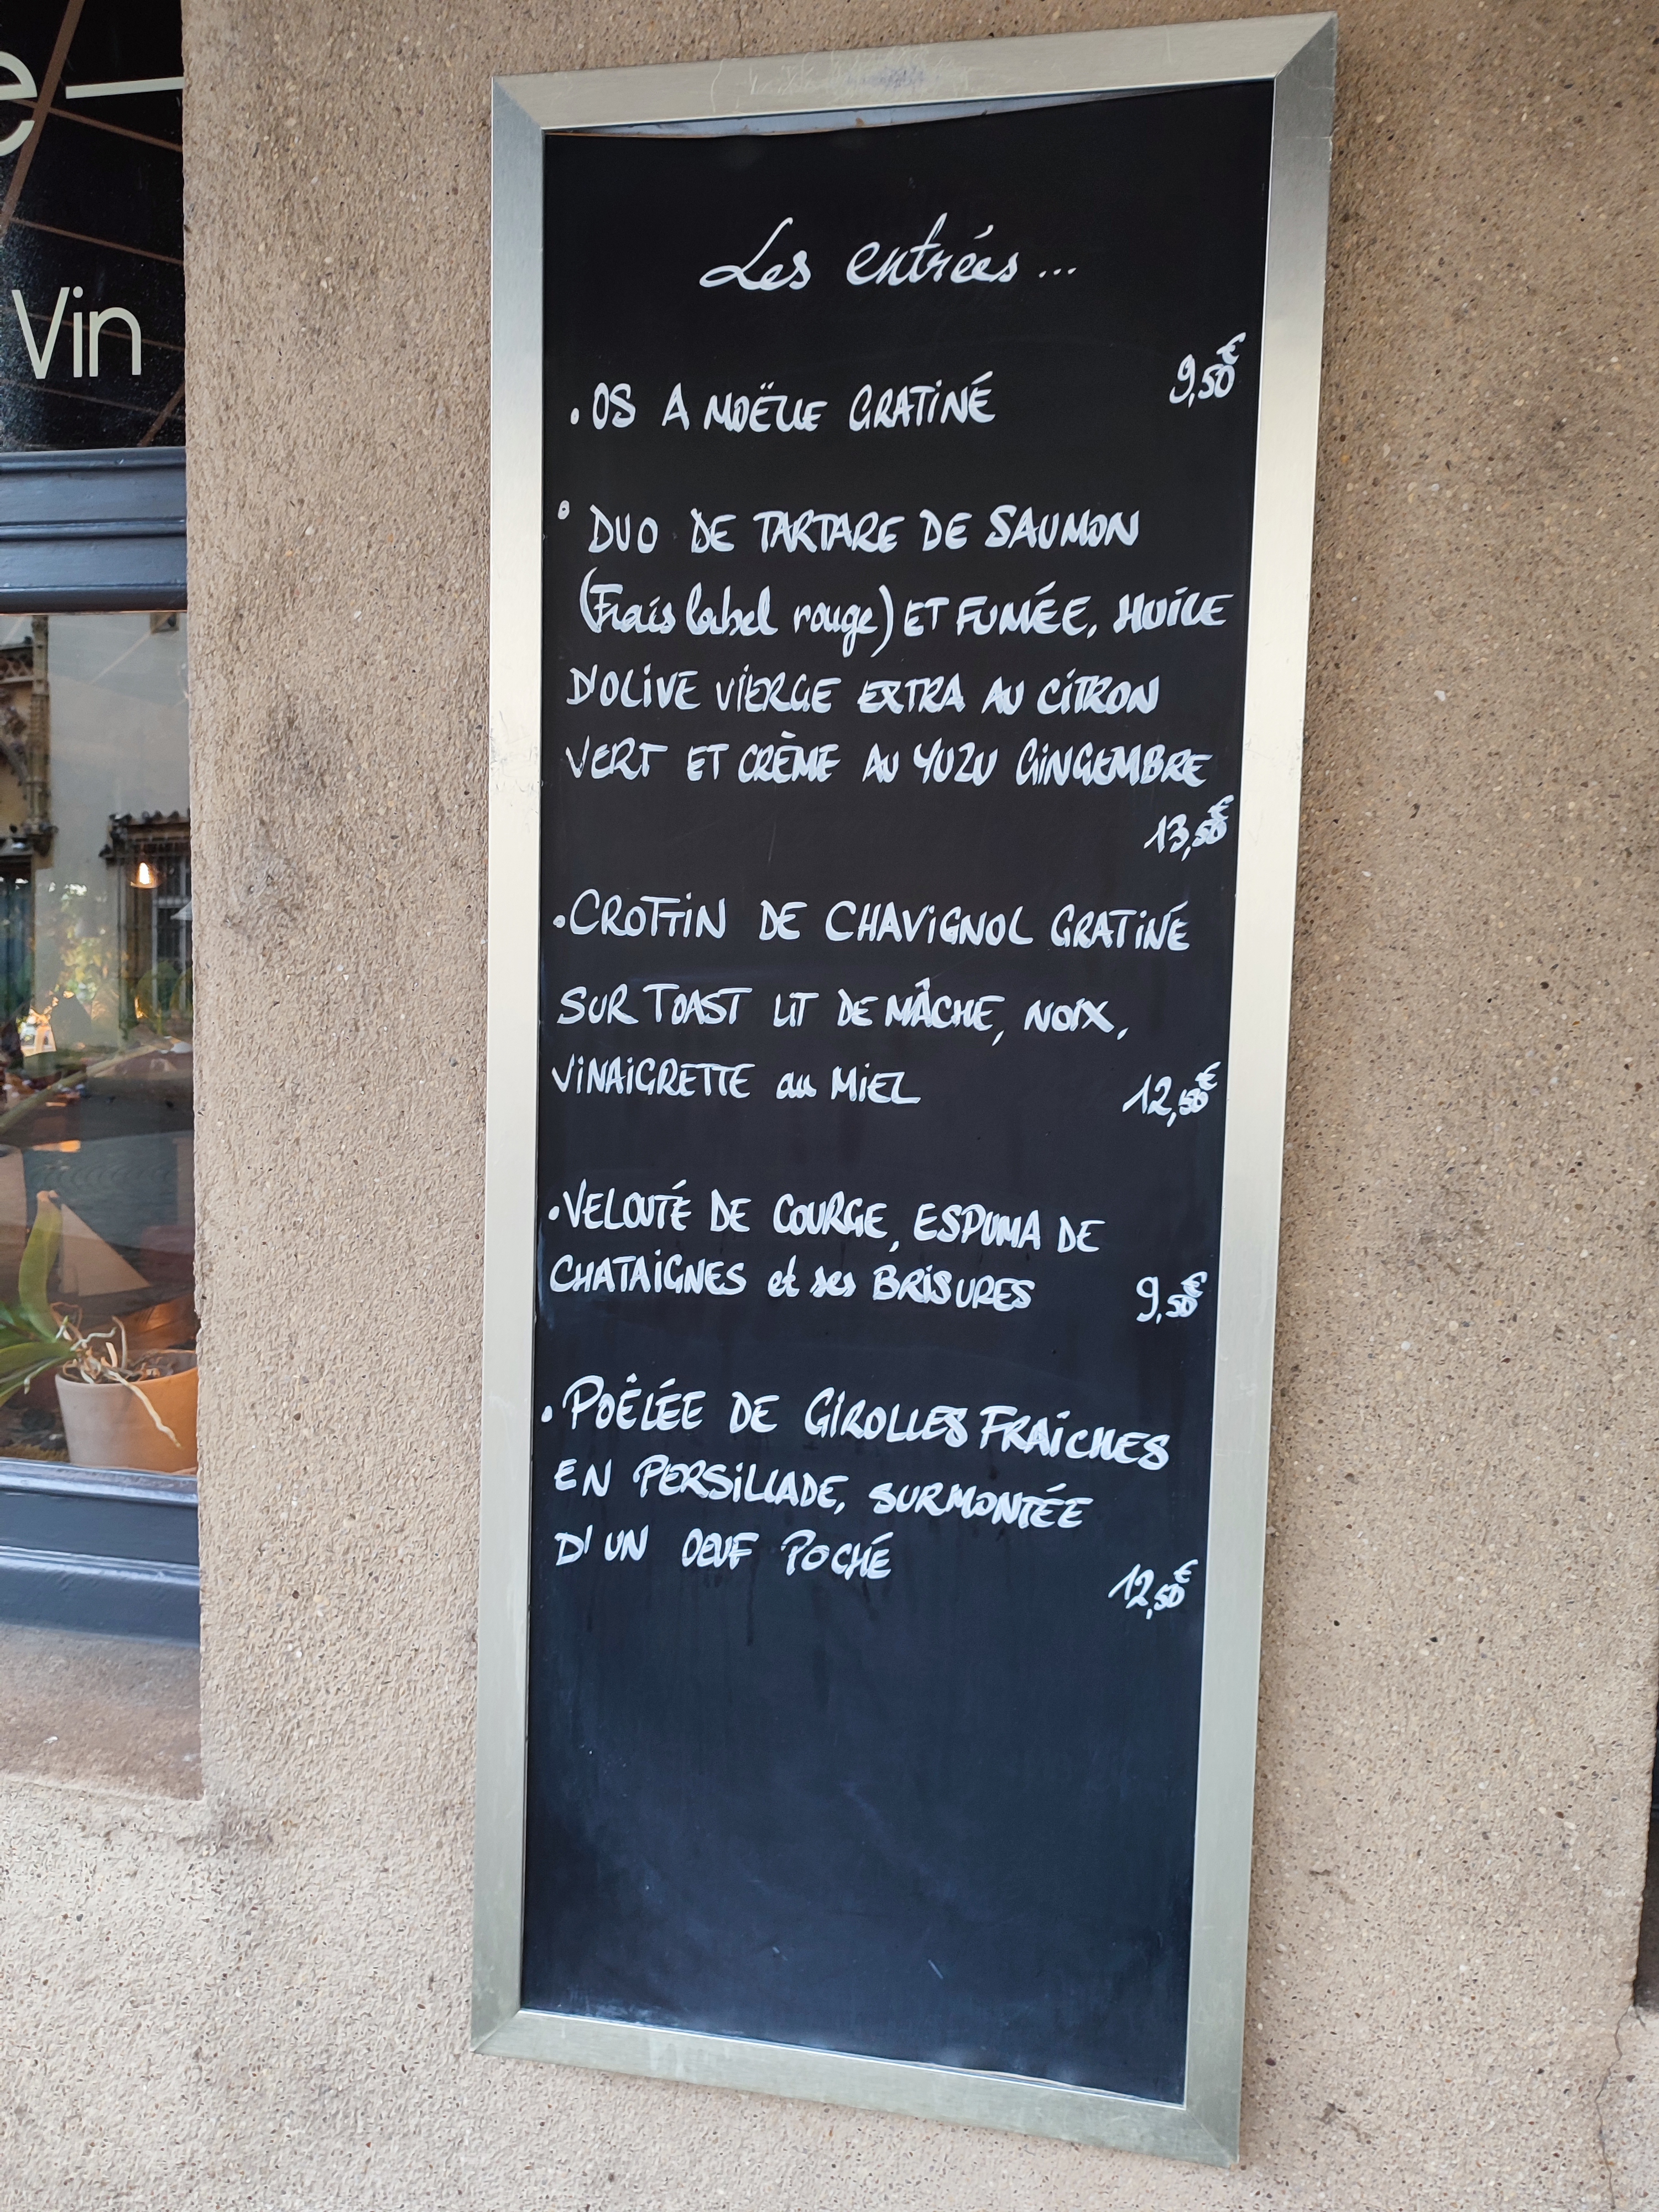 e
Vin
Les entrées...
. OS A MOËLLE GRATINÉ 9,50€
• DUO DE TARTARE DE SAUMON
(Frais label rouge) ET FUMÉE, HUILE
D'OLIVE VIERGE EXTRA AU CITRON
VERT ET CRÈME AU YUZU GINGEMBRE
13,50€
. CROTTIN DE CHAVIGNOL GRATINÉ
SUR TOAST LIT DE MÂCHE, NOIX,
VINAIGRETTE au MIEL 12,50€
. VELOUTÉ DE COURGE, ESPUMA DE
CHATAIGNES et ses BRISURES 9,50€
. POÊLÉE DE GIROLLES FRAÎCHES
EN PERSILLADE, SURMONTÉE
D'UN OEUF POCHÉ
12,50€